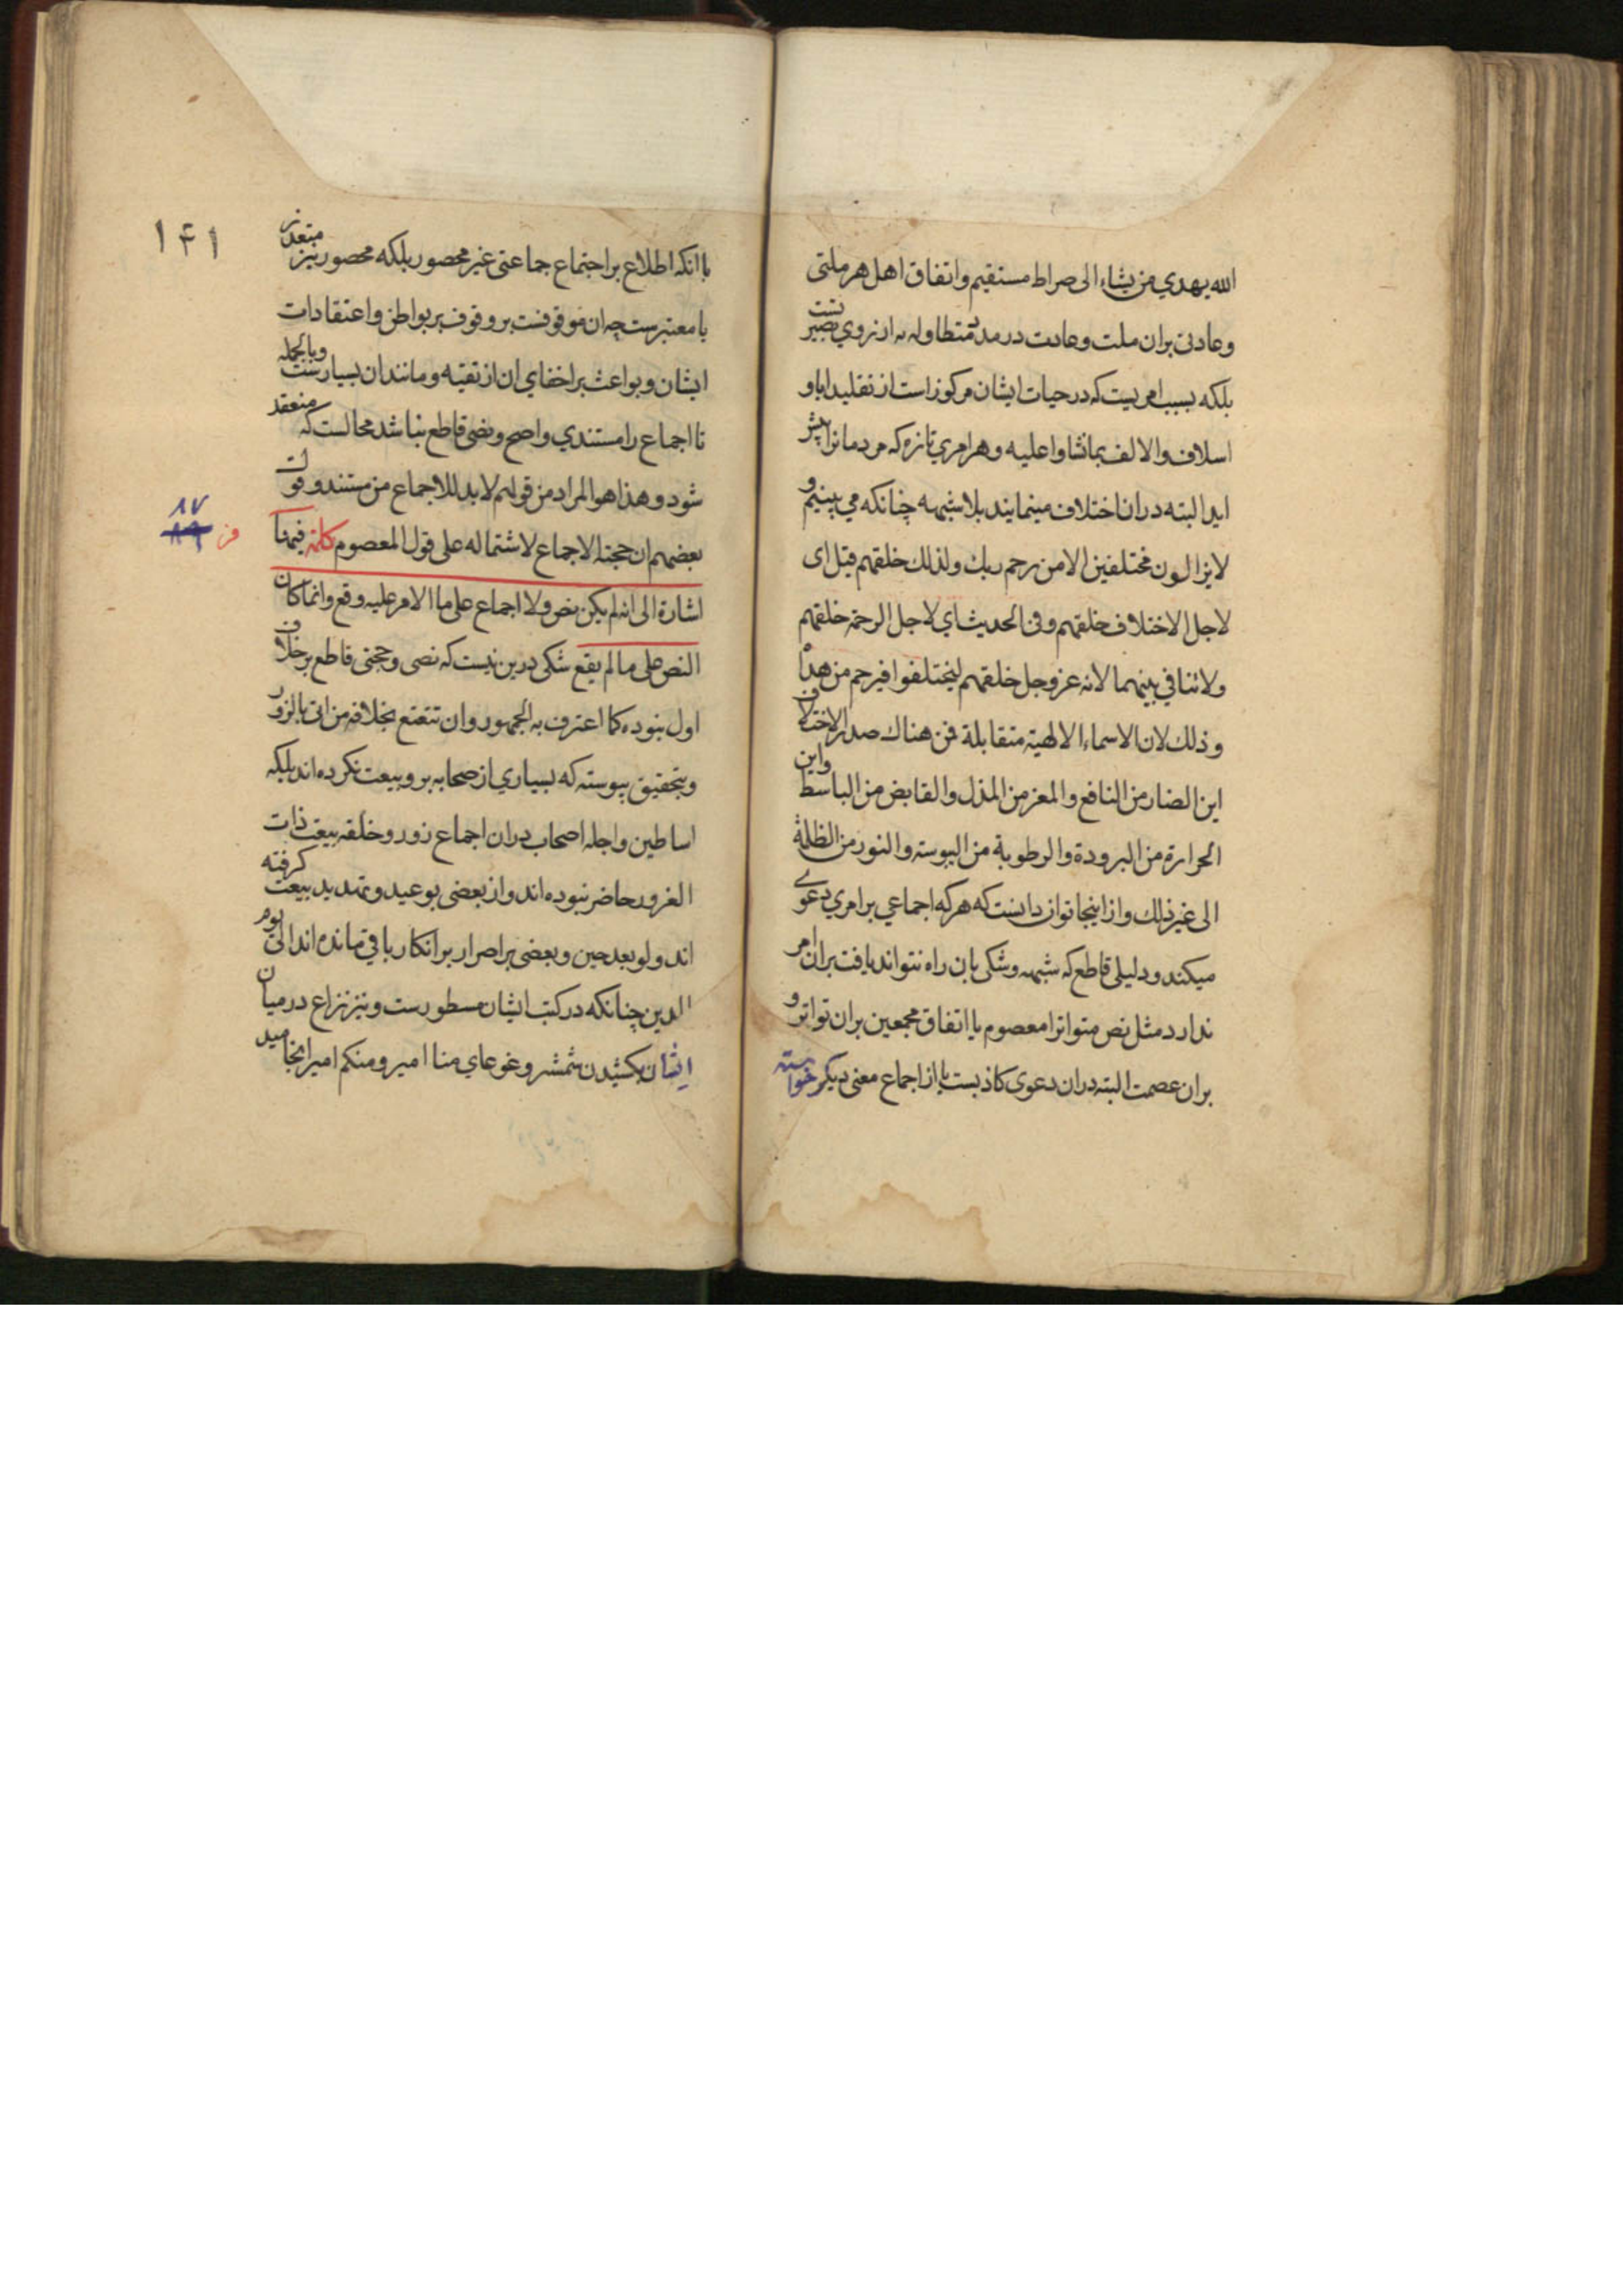 الله يهدي من يشاء الى صراط مستقيم و اتفاق اهل هر ملتى
و عادتى بران ملت و عادت در مدد متطاوله نه از روي بصيرتست
بلكه بسبب امريست كه در حيات ايشان مركوز است از تقليد ابا و
اسلاف و الالف بما نشاوا عليه و هر امري تازه كه مردمانرا پيش
ايد البته دران اختلاف مينمايند بلا شبهه چنانكه مي بينيم و
لا يزالون مختلفين الا من رحم ربك و لذلك خلقهم قيل اى
لاجل الاختلاف خلقهم و فى الحديث اي لاجل الرحمة خلقهم
و لا تنافي بينهما لانه عز و جل خلقهم ليختلفوا فيرحم من هدا
و ذلك لان الاسماء الالهية متقابلة فمن هناك صدر الاختلاف
اين الضار من النافع و المعز من المذل و القابض من الباسط و اين
الحرارة من البرودة و الرطوبة من اليبوسته و النور من الظلمة
الى غير ذلك و از اينجا توان دانست كه هر كه اجماعي بر امري دعوے
ميكند و دليلى قاطع كه شبهه و شكى بان راه نتواند يافت بران امر
ندارد مثل نص متواتر امعصوم يا اتفاق مجمعين بران تواتر و
بران عصمت البته دران دعوى كاذبست يا از اجماع معنى ديكر خواسته
با انكه اطلاع بر اجتماع جماعتى غير محصور بلكه محصور نيز متعذر
يا معتبرست چه ان موقوفست بر وقوف بر بواطن و اعتقادات
ايشان و بواعث بر اخفاي ان از تقيه و مانند ان بسيارست و بالجمله
تا اجماع را مستندي واضح و نصى قاطع نباشد محالست كه منعقد
شود و هذا هو المراد من قولهم لا بد للاجماع من مستند و قول
بعضهم ان حجية الاجماع لاشتماله على قول المعصوم كلمة فيها
اشارة الى انه لم يكن نص و لا اجماع على ما الامر عليه وقع و انما كان
النص على ما لم يقع شكى درين نيست كه نصى و حجتى قاطع بر خلاف
اول نبوده كما اعترف به الجمهور و ان تتعتع بخلافه من اتى بالزور
و بتحقيق پيوسته كه بسياري از صحابه برو بيعت نكرده اند بلكه
اساطين و اجله اصحاب دران اجماع زور و خلقه بيعت ذات
الغرور حاضر نبوده اند و از بعضى بوعيد و تهديد بيعت كرفته
اند و لو بعد حين و بعضى بر اصرار بر انكار باقي مانده اند الى يوم
الدين چنانكه در كتب ايشان مسطورست و نيز نزاع در ميان
ايشان بكشيدن شمشر و غوغاي منا امير و منكم امير انجاميد
۱۴۱
۸۷